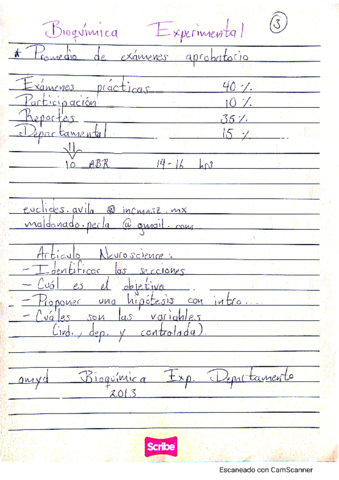 Bioquímica Experimental
3
* Promedio de exámenes aprobatorio
Exámenes prácticas 40 %
Participación 10 %
Reportes 35 %
Departamental 15 %
10 ABR 14-16 hrs
euclides.avila @ incmnsz.mx
maldonado.perla @ gmail.com
Artículo Neuroscience:
- Identificar las secciones
- Cuál es el objetivo
- Proponer una hipótesis con intro...
- Cuáles son las variables
(ind., dep. y controlada)
amyd Bioquímica Exp. Departamento
2013
Scribe
Escaneado con CamScanner